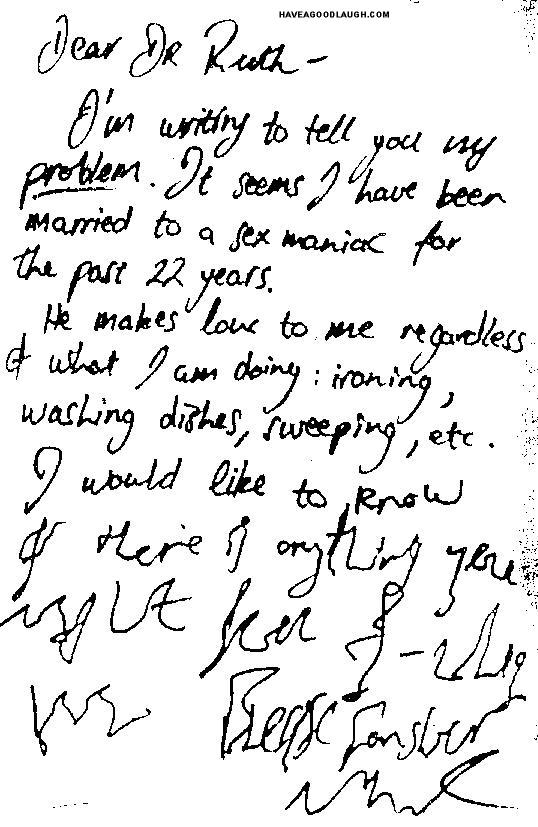 HAVEAGOODLAUGH.COM
Dear Dr Ruth -
I'm writing to tell you my
problem. It seems I have been
married to a sex maniac for
the past 22 years.
He makes love to me regardless
of what I am doing: ironing,
washing dishes, sweeping, etc.
I would like to know
if there is anything you
Please